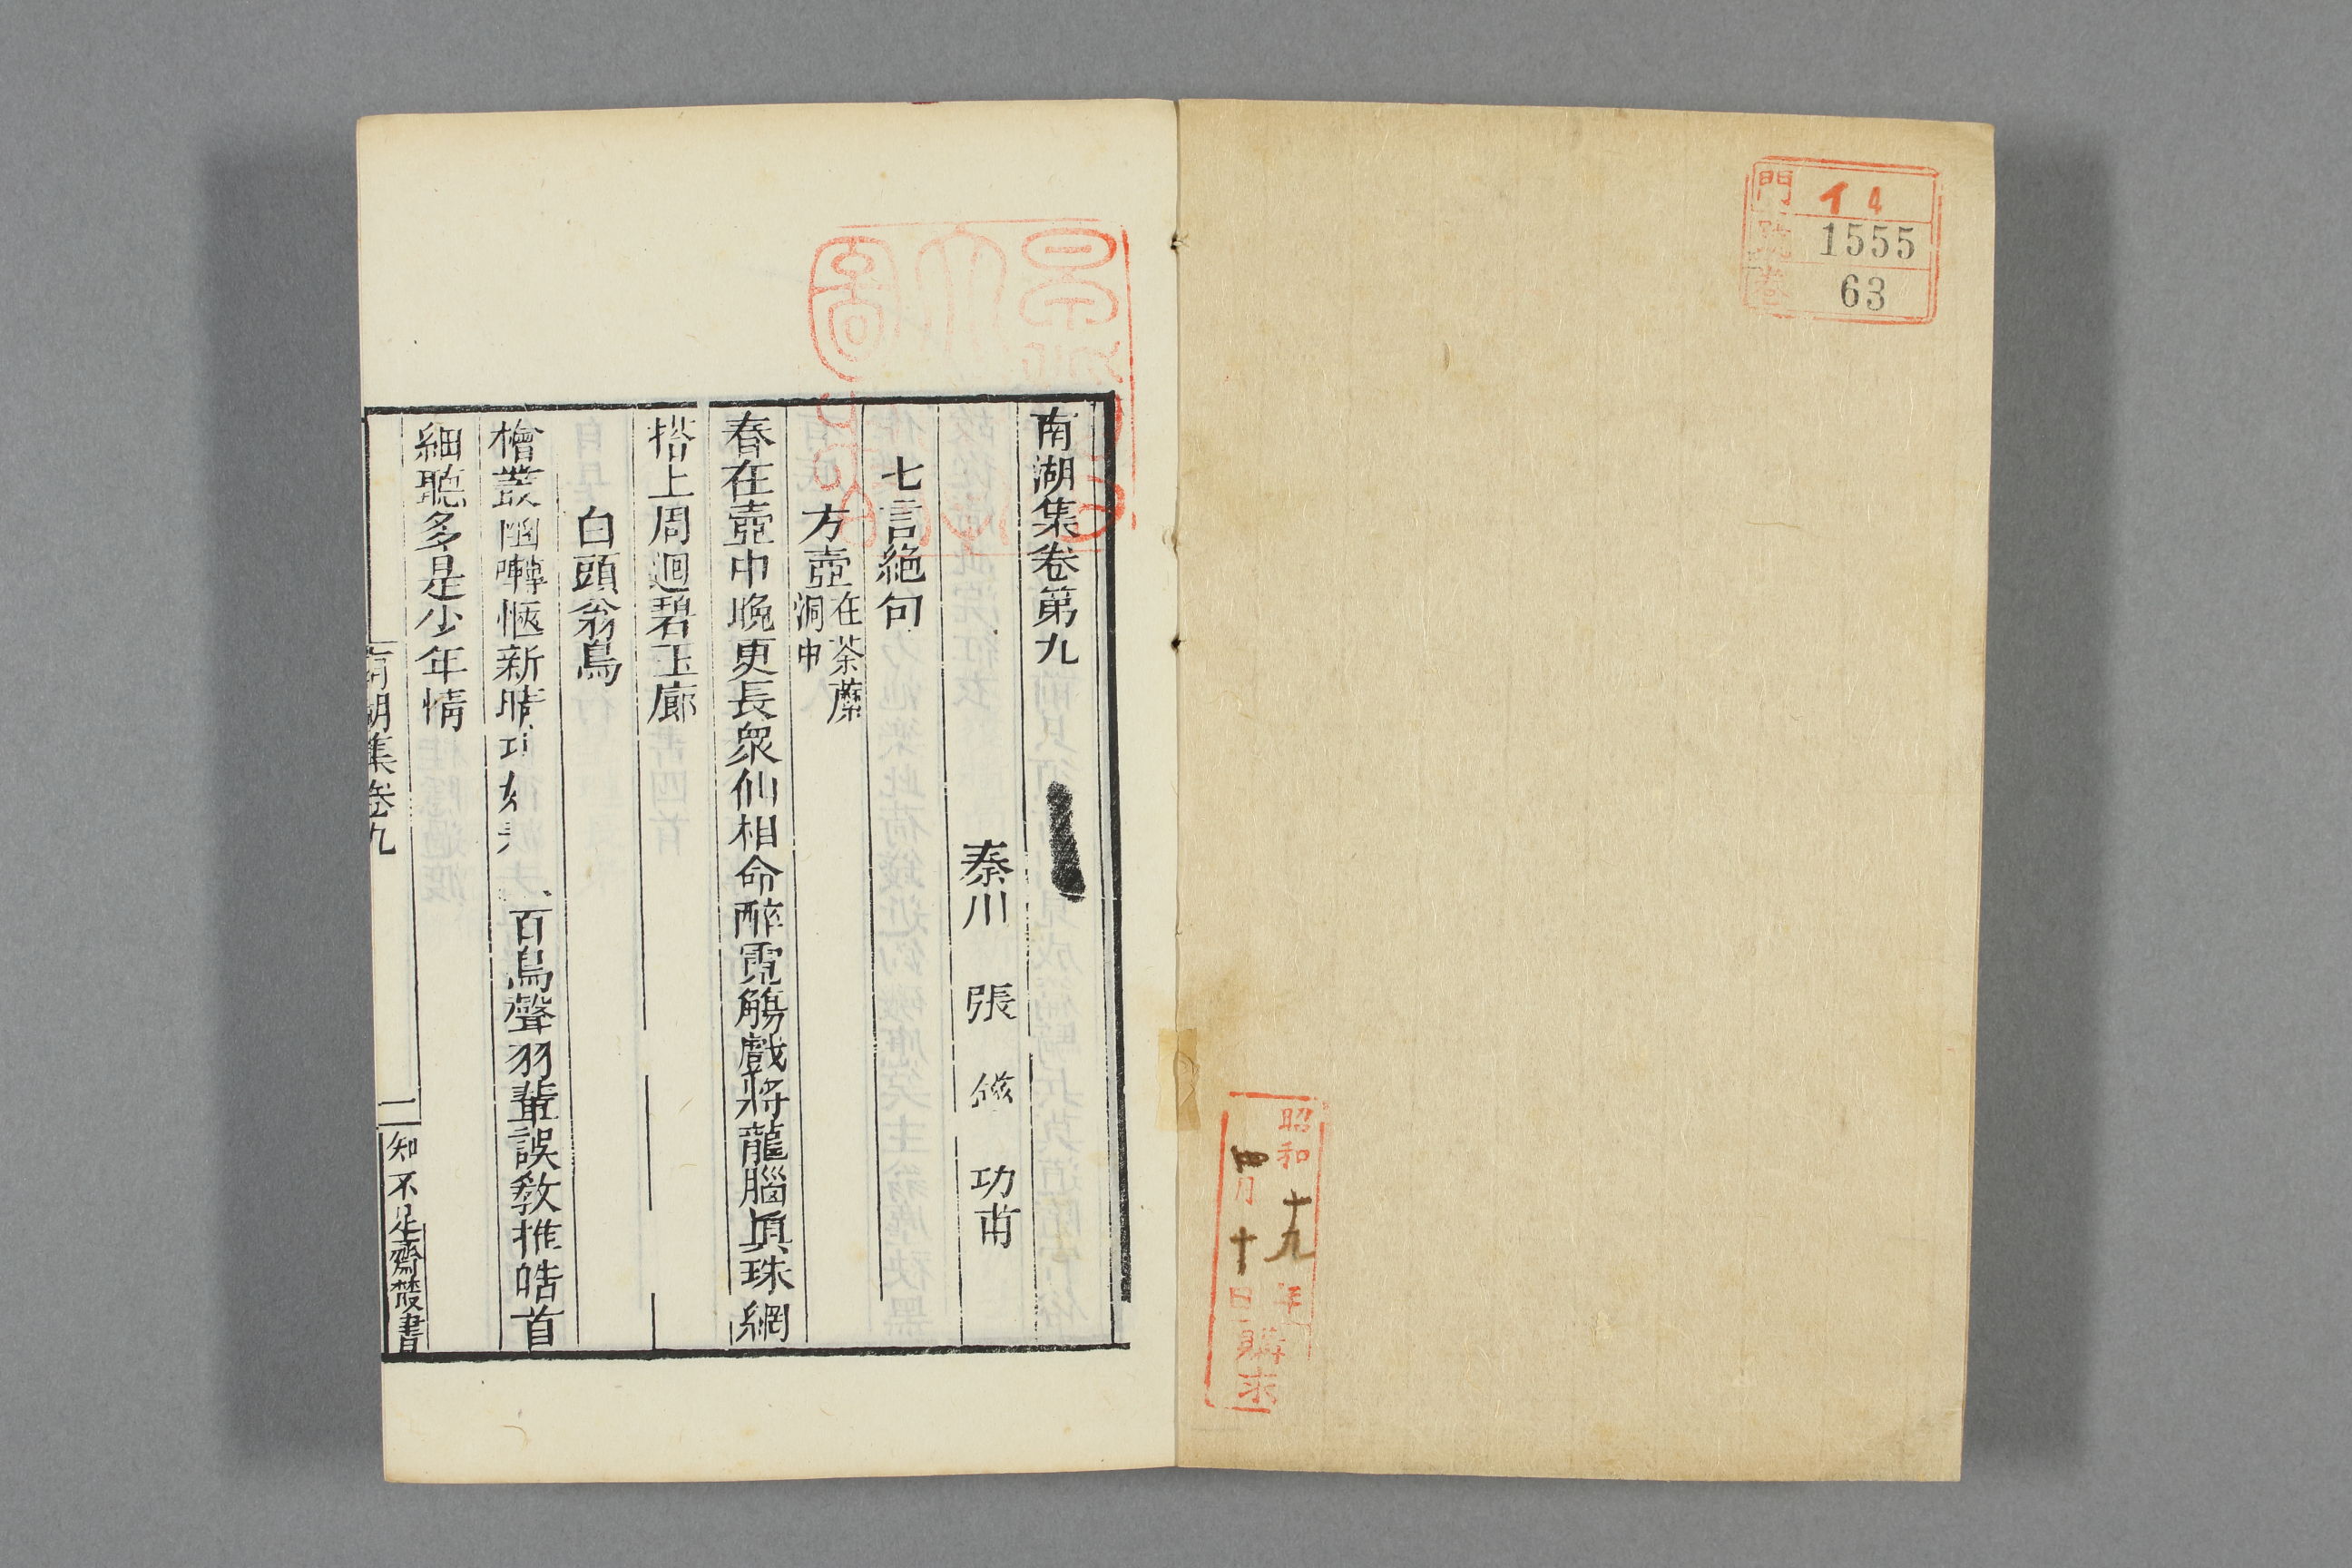 門 イ4
號 1555
卷 63
昭和十九年
四月十日
購求
南湖集卷第九
秦川 張 鎡 功甫
七言絶句
方壺在荼蘼洞中
春在壺中晚更長衆仙相命醉霓觴戲將龍腦眞珠網
搭上周迴碧玉廊
白頭翁鳥
檜叢幽囀愜新晴巧 百鳥聲羽輩誤教推皓首
細聽多是少年情
南湖集卷九
一
知不足齋叢書